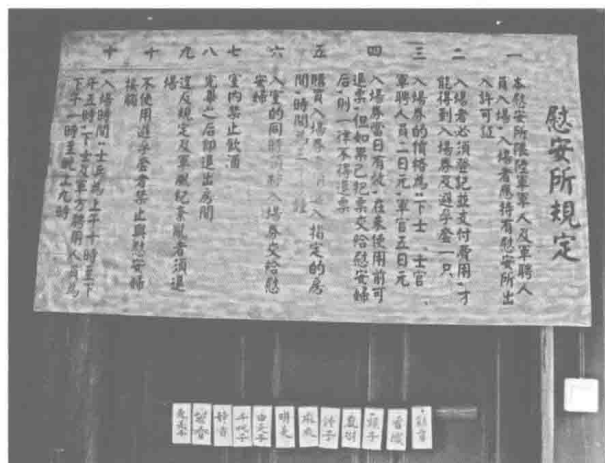 慰安所規定
一 本慰安所限陸軍軍人及軍聘人
員入場,入場者應持有慰安所出
入許可証
二 入場者必須登記並支付費用,才
能得到入場券及避孕套一只
三 入場券的價格為:下士、士官、
軍聘人員二日元,軍官五日元
四 入場券當日有效,在未使用前可
退票,但如果已把票交給慰安婦
后,則一律不得退票
五 購買入場券 入指定的房
間,時間為三十 鐘
六 入室的同時須將入場券交給慰
安婦
七 室內禁止飲酒
八 完事之后即退出房間
九 違反規定及軍風紀紊亂者須退
場
十 不使用避孕套者禁止與慰安婦
接觸
十一 入場時間:士兵為上午十時至下
午五時,下士及軍方聘用人員為
下午一時至晚上九時
香織
夏樹
麻衣
明美
由美子
千代子
静香